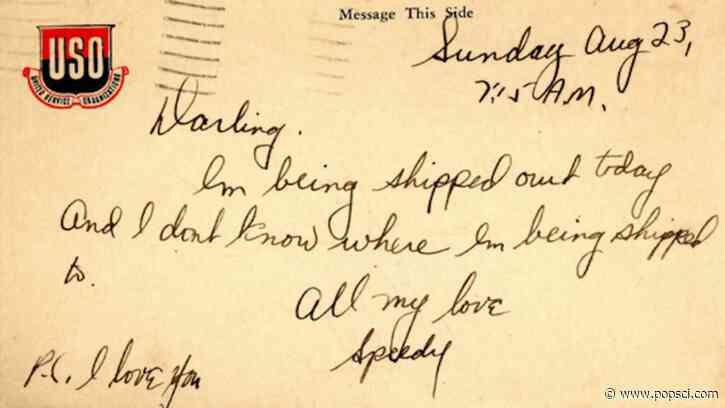 Message This Side
USO
UNITED SERVICE ORGANIZATIONS
Sunday Aug 23,
7:15 A.M.
Darling.
Im being shipped out today
And I dont know where Im being shipped
to.
All my love
Speedy
P.S. I love you
© www.popsci.com